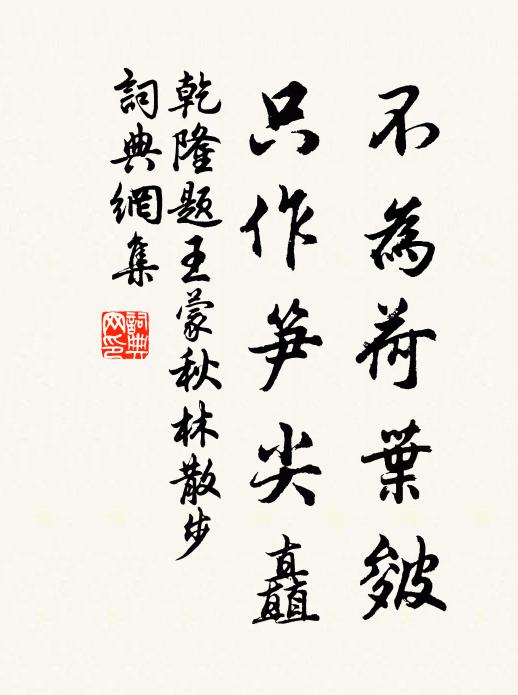 不為荷葉皴
只作笋尖矗
乾隆題王蒙秋林散步
詞典網集
詞典
网印